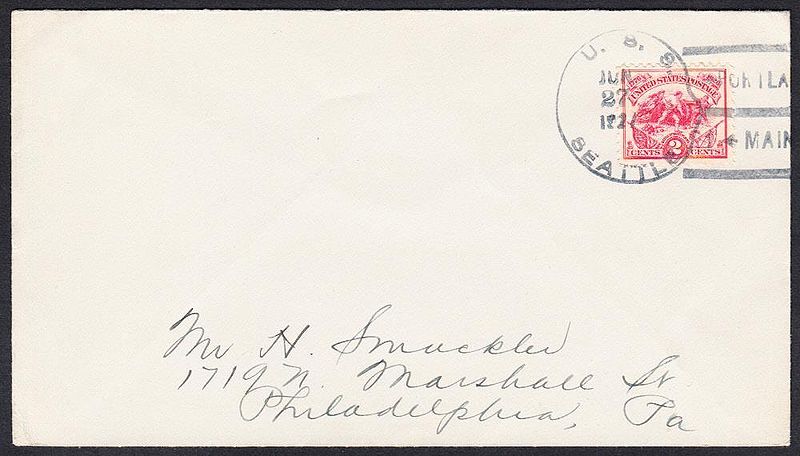 U. S. S.
SEATTLE
27
PORTLA
MAIN
UNITED STATES POSTAGE
CENTS 2 CENTS
Mr H. Smuckler
1719 N. Marshall St.
Philadelphia, Pa